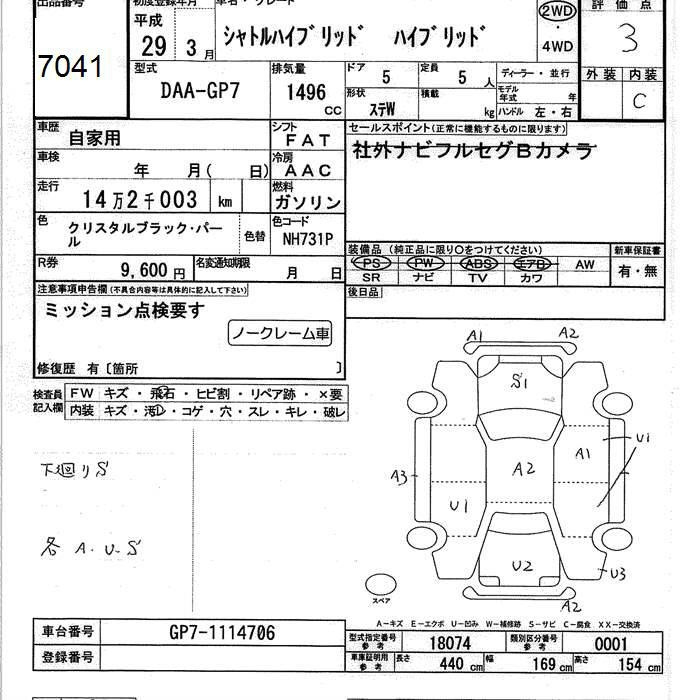 出品番号
7041
初度登録年月
平成
29 3 月
車名・グレード
シャトルハイブリッド ハイブリッド
2WD
・
4WD
評価点
3
外装 内装
C
型式
DAA-GP7
排気量
1496
CC
ドア 5
定員 5 人
形状
ステW
積載
kg
ディーラー・並行
モデル年式 年
ハンドル 左・右
車歴
自家用
シフト
FAT
セールスポイント(正常に機能するものに限ります)
社外ナビフルセグBカメラ
車検
年 月( 日)
冷房
AAC
走行
14万2千003 km
燃料
ガソリン
色
クリスタルブラック・パール
色替
色コード
NH731P
装備品 (純正品に限り○をつけてください)
新車保証書
PS PW ABS エアB AW
SR ナビ TV カワ
有・無
R券
9,600 円
名変通知期限
月 日
後日品
注意事項申告欄(不具合内容等は具体的に記入して下さい)
ミッション点検要す
ノークレーム車
修復歴 有〔箇所 〕
検査員
記入欄
FW キズ・飛石・ヒビ割・リペア跡・×要
内装 キズ・汚レ・コゲ・穴・スレ・キレ・破レ
下廻りS
各 A・U・S
A1 A2
S1
A1
U1
A3
A2
U1
U2
U3
A2
スペア
A-キズ E-エクボ U-凹み W-補修跡 S-サビ C-腐食 XX-交換済
車台番号
GP7-1114706
登録番号
型式指定番号
参考
18074
類別区分番号
参考
0001
車庫証明用
参考
長さ 440 cm
幅 169 cm
高さ 154 cm